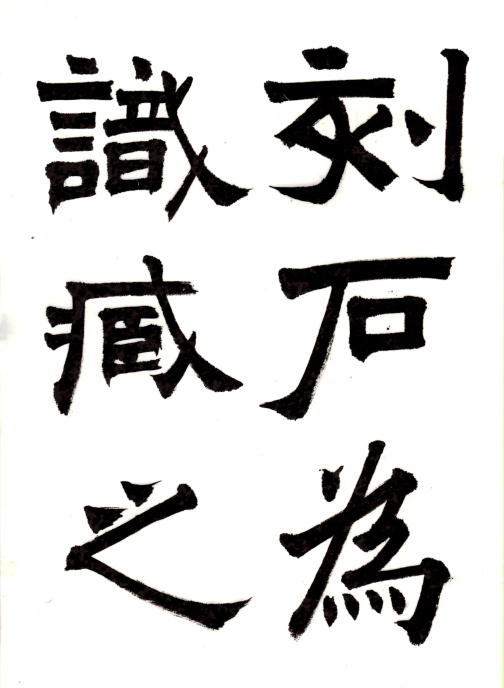 刻石為
識臧之